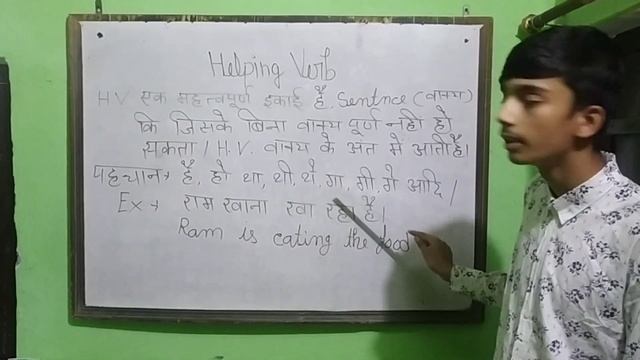 Helping Verb
HV एक महत्वपूर्ण इकाई है Sentnce (वाक्य)
कि जिसके बिना वाक्य पूर्ण नही हो
सकता। H.V. वाक्य के अंत मे आती है।
पहचान→ है, हो था, थी, थे, गा, गी, गे आदि।
Ex→ राम खाना खा रहा है।
Ram is eating the food